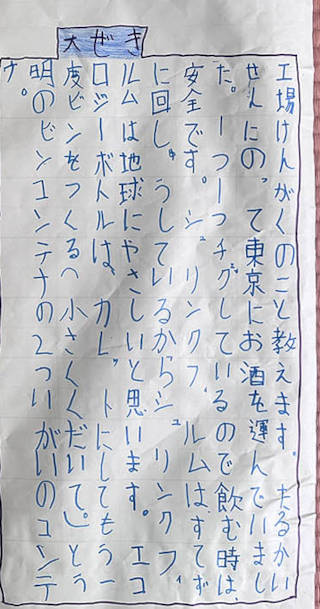 大ぜき
工場けんがくのこと教えます。たるかい
せんにのって東京にお酒を運んでいまし
た。一つ一つチグしているので飲む時は、
安全です。シュリンクフィルムはすてず
に回しゅうしているからシュリンクフィ
ルムは地球にやさしいと思います。エコ
ロジーボトルは、カレットにしてもう一
度ビンをつくる(小さくくだいて。)とう
明のビンコンテナの2ついがいのコンテ
ナ。